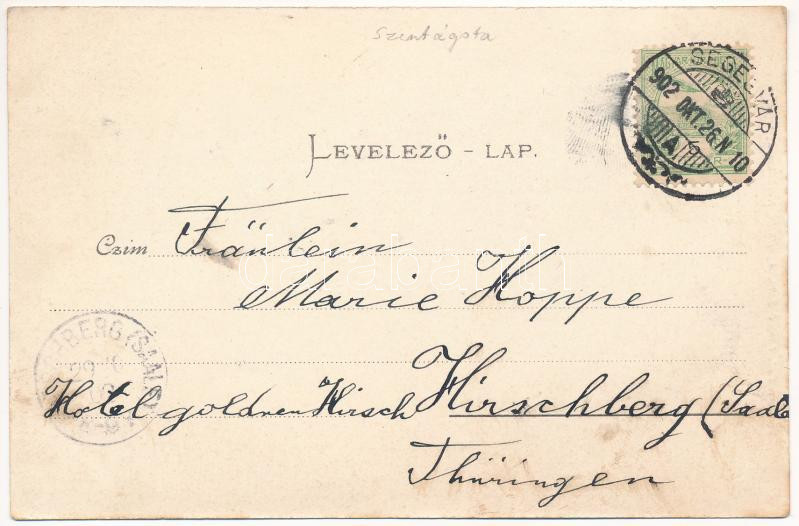 Szentágota
SEGESVÁR
902 OKT. 26. N 10
A
LEVELEZŐ - LAP.
Czim Fräulein
Marie Hoppe
Hotel goldnen Hirsch Hirschberg (Saale
Thüringen
BERG (SAALE)